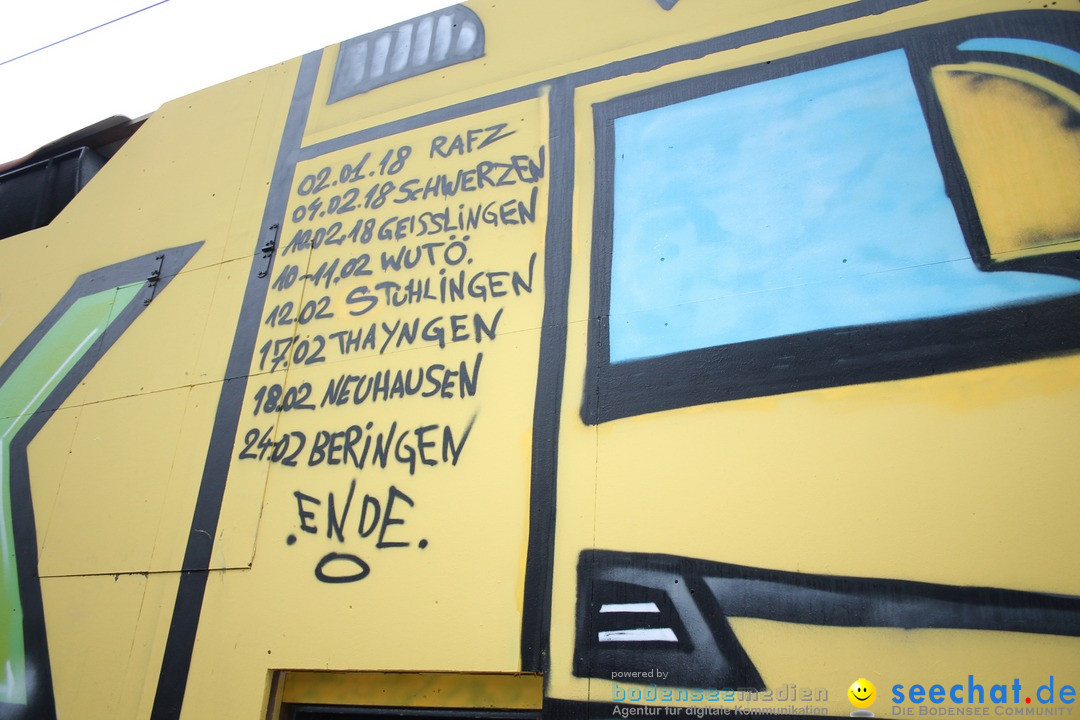 02.01.18 RAFZ
04.02.18 SCHWERZEN
10.02.18 GEISSLINGEN
10-11.02 WUTÖ.
12.02 STÜHLINGEN
17.02 THAYNGEN
18.02 NEUHAUSEN
24.02 BERINGEN
.ENDE.
powered by
bodenseemedien
Agentur für digitale Kommunikation
seechat.de
DIE BODENSEE COMMUNITY